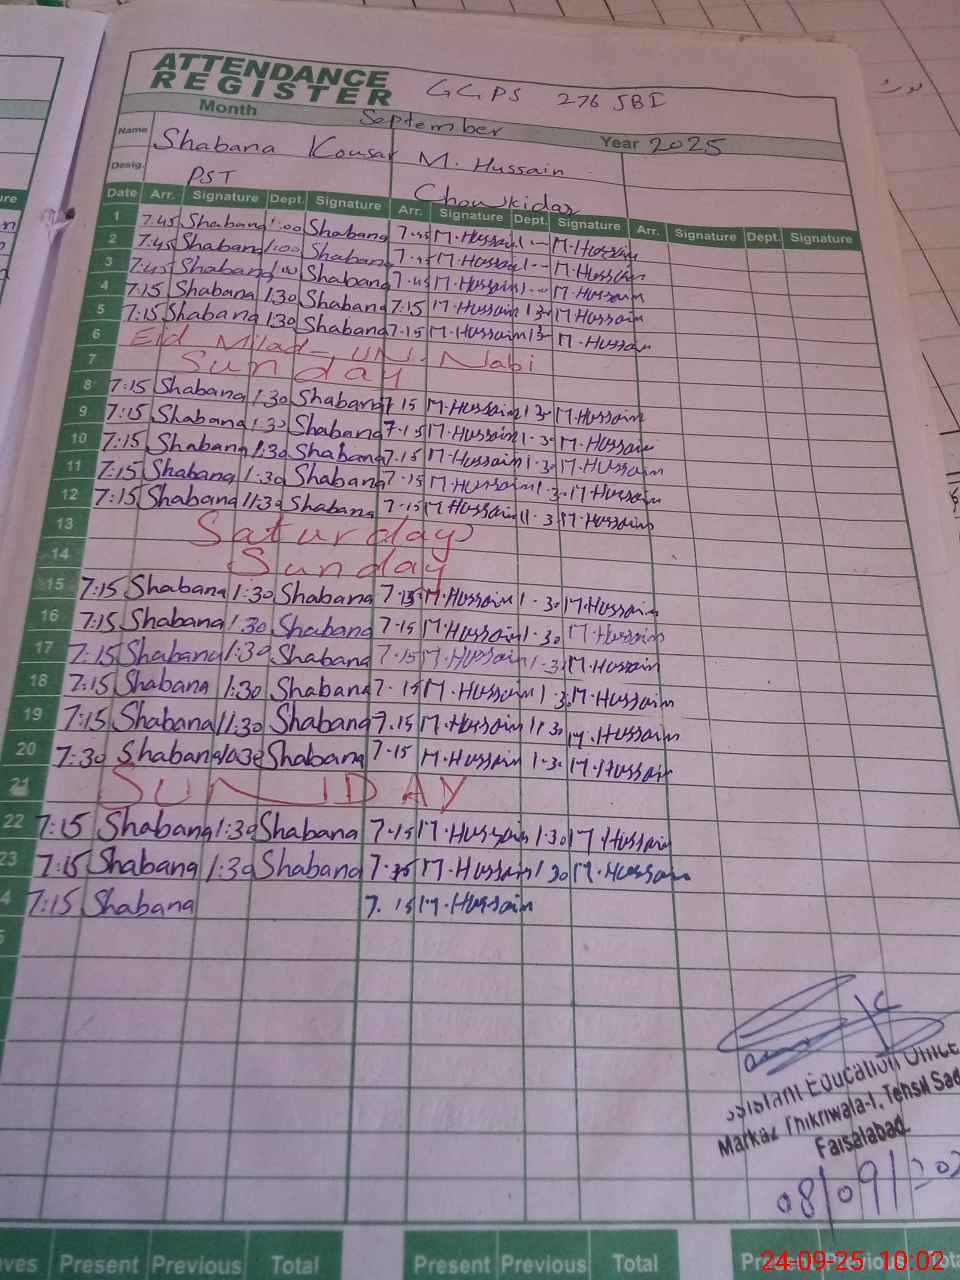 ATTENDANCE REGISTER GGPS 276 JBI
Month September Year 2025
Name Shabana Kousar M. Hussain
Desig. PST Chowkidar
Date Arr. Signature Dept. Signature Arr. Signature Dept. Signature Arr. Signature Dept. Signature
1 7.45 Shabana 1:00 Shabana 7-45 M.Hussain 1 -- M.Hussain
2 7:45 Shabana 1:00 Shabana M.Hussain 1 -- M.Hussain
3 7:45 Shabana Shabana 7-45 M.Hussain M.Hussain
4 7:15 Shabana 1:30 Shabana 7:15 M.Hussain M.Hussain
5 7:15 Shabana 130 Shabana 7-15 M.Hussain M.Hussain
6 Eid Milad-UN-Nabi
7 Sunday
8 7:15 Shabana 1:30 Shabana 7 15 M.Hussain M.Hussain
9 7:15 Shabana 1:30 Shabana 7-15 M.Hussain M.Hussain
10 7:15 Shabana 1:30 Shabana 7.15 M.Hussain M.Hussain
11 7:15 Shabana 1:30 Shabana 7-15 M.Hussain M.Hussain
12 7:15 Shabana Shabana 7-15 M.Hussain M.Hussain
13 Saturday
14 Sunday
15 7:15 Shabana 1:30 Shabana 7-15 M.Hussain 1-30 M.Hussain
16 7:15 Shabana 1:30 Shabana 7-15 M.Hussain 1-30 M.Hussain
17 7:15 Shabana 1:30 Shabana 7-15 M.Hussain M.Hussain
18 7:15 Shabana 1:30 Shabana 7-15 M.Hussain M.Hussain
19 7:15 Shabana 11:30 Shabana 7.15 M.Hussain 11:30 M.Hussain
20 7:30 Shabana Shabana 7-15 M.Hussain 1-30 M.Hussain
21 SUNDAY
22 7:15 Shabana 1:30 Shabana 7-15 M.Hussain 1.30 M.Hussain
23 7:15 Shabana 1:30 Shabana M.Hussain 1 30 M.Hussain
4 7:15 Shabana 7.15 M.Hussain
5
ssistant Education Office
Markaz Thikriwala-I, Tehsil Sad
Faisalabad
08/09/202
ves Present Previous Total Present Previous Total Present Previous
24-09-25 10:02